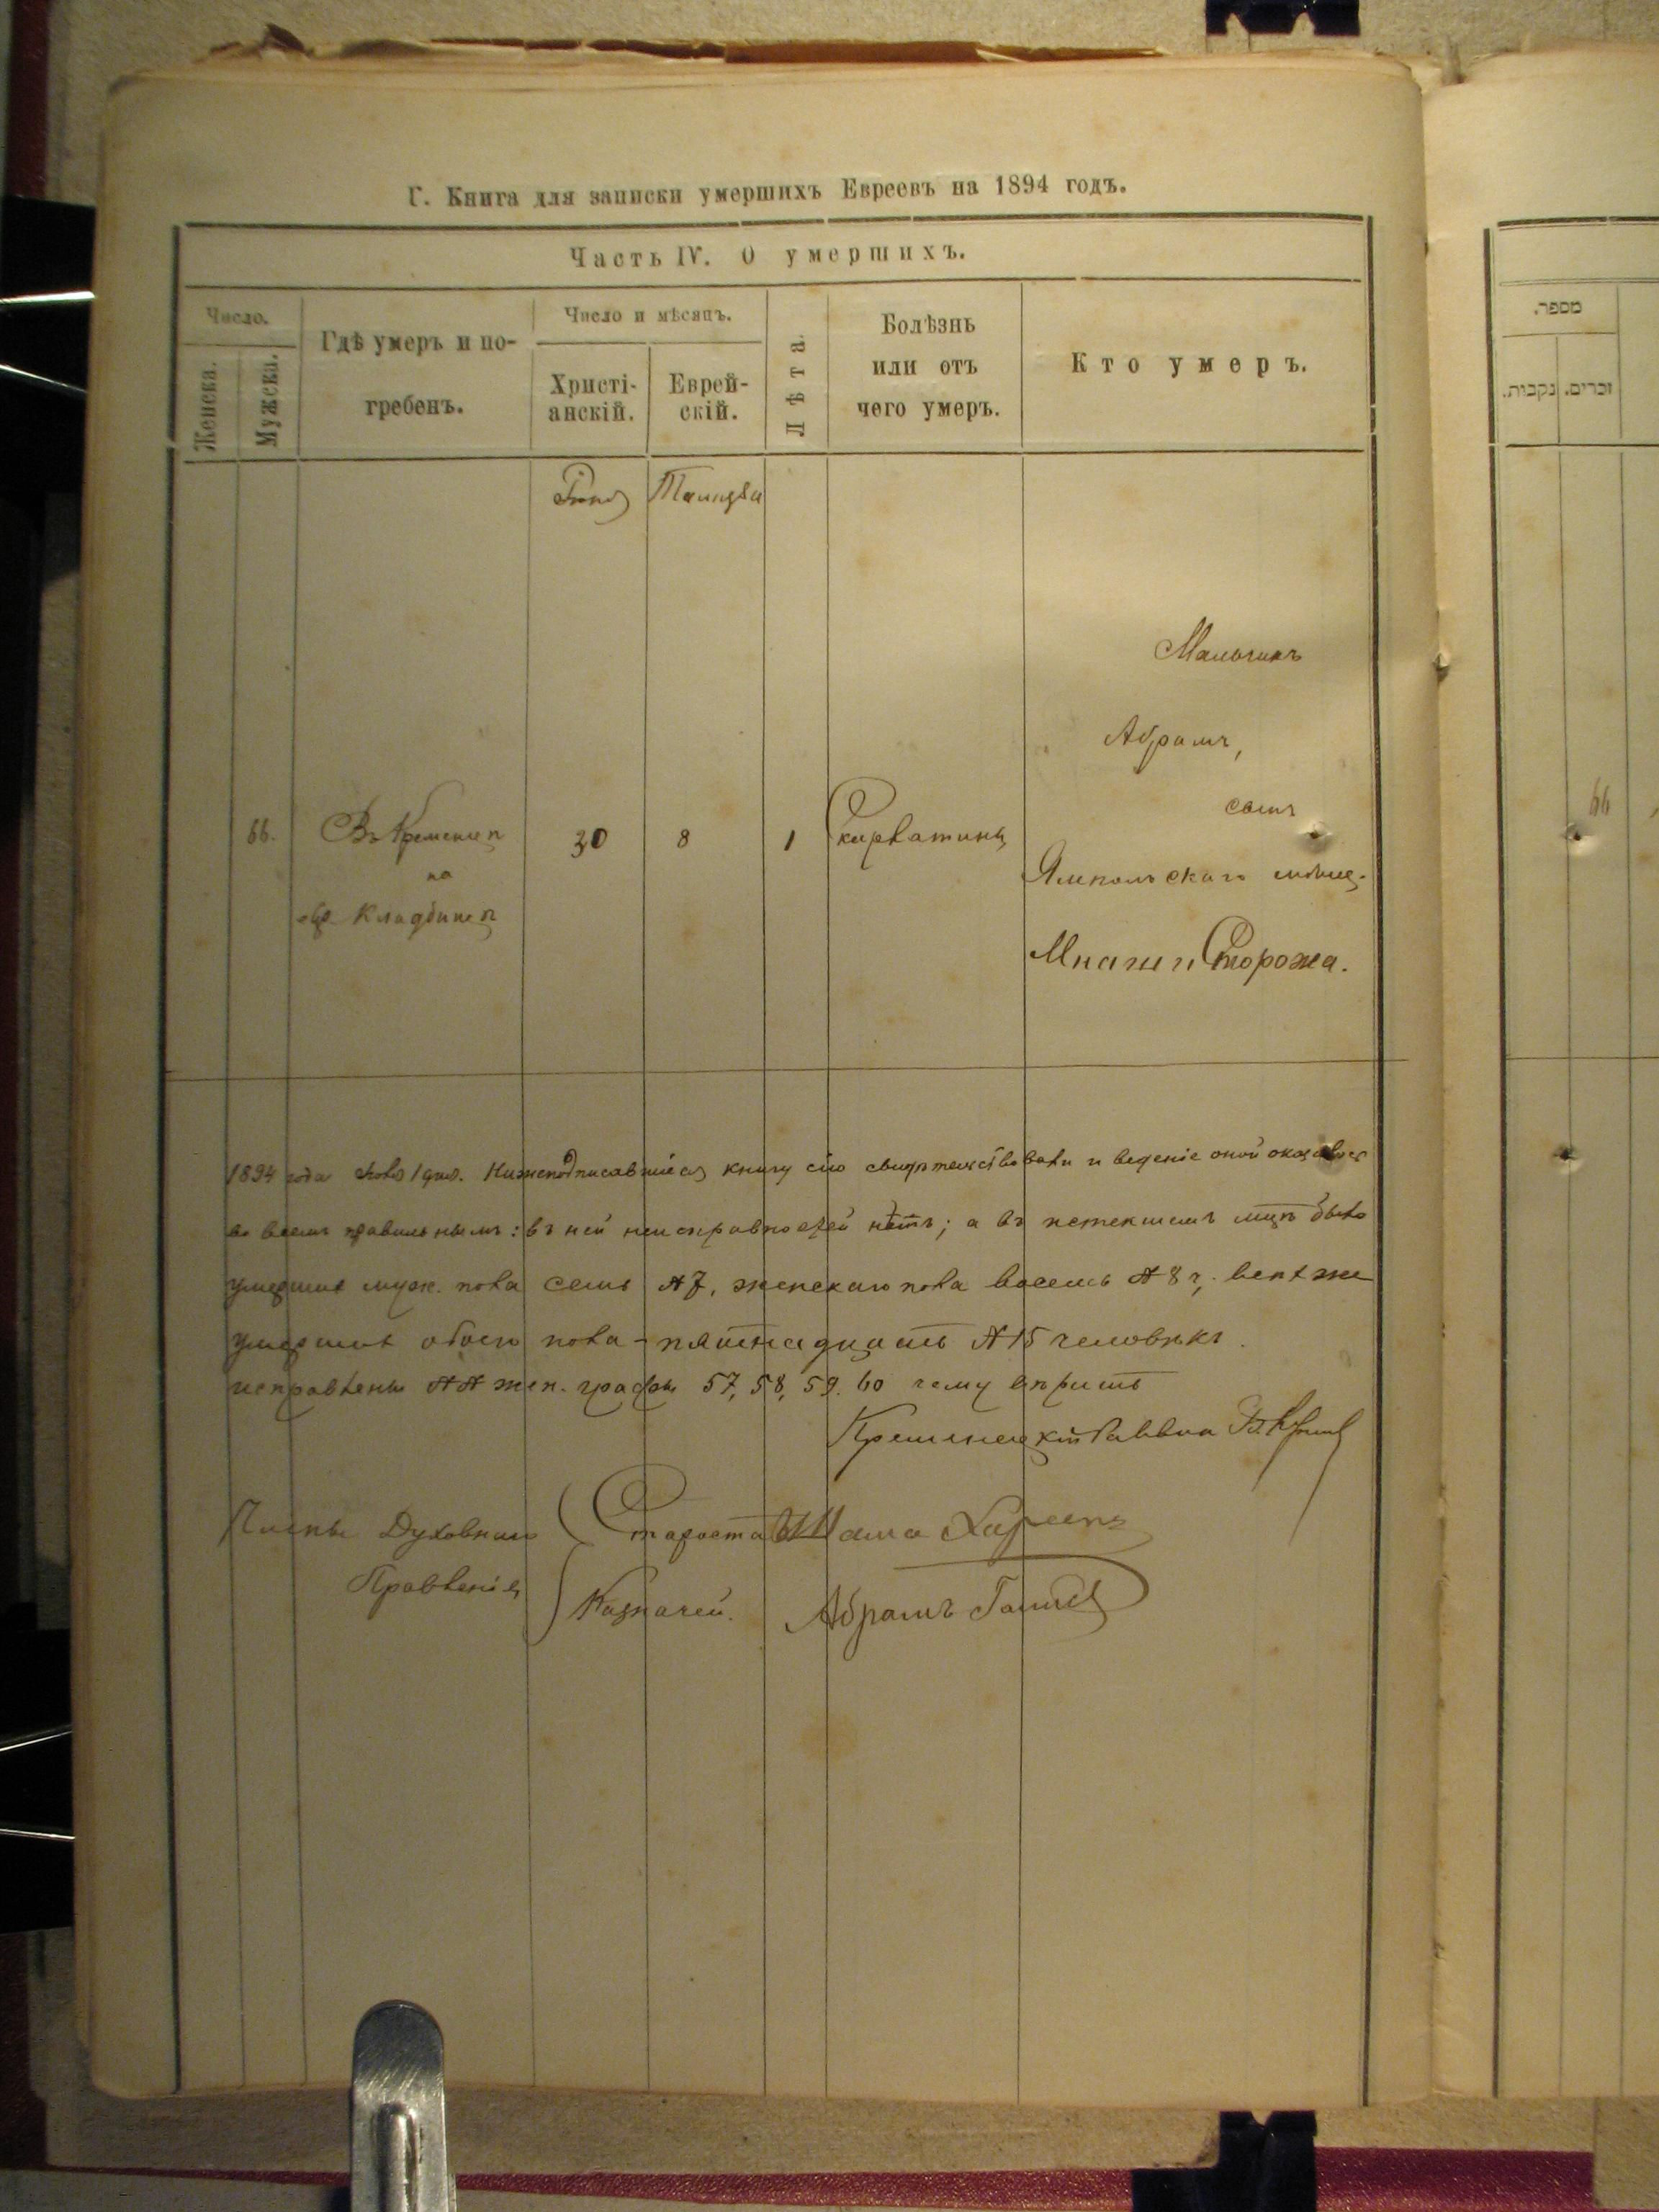 Г. Книга для записки умершихъ Евреевъ на 1894 годъ.
Часть IV. О умершихъ.
Число.
Женска.
Мужска.
Гдѣ умеръ и по-
гребенъ.
Число и мѣсяцъ.
Христі-
анскій.
Еврей-
скій.
Лѣта.
Болѣзнь
или отъ
чего умеръ.
Кто умеръ.
66.
Въ Кременцѣ
на
евр. кладбищѣ
30
8
1
Скарлатины
Мальчикъ
Абрамъ,
сынъ
Ямпольскаго мѣщ.
Сторожа.
1894 года 1 дня. Нижеподписавшіеся книгу сію свидѣтельствовали и веденіе оной оказалось
во всемъ правильнымъ: въ ней неисправностей нѣтъ; а въ истекшемъ мцѣ было
умершихъ муж. пола семь № 7, женскаго пола восемь № 8 ч; всѣхъ же
умершихъ обоего пола - пятнадцать № 15 человѣкъ.
исправлены №№ жен. графы 57, 58, 59. 60 чему вѣрить
Кременецкій Раввинъ
Члены Духовнаго
Правленія
Староста
Казначей.
Абрамъ
מספר.
נקבות.
זכרים.
66